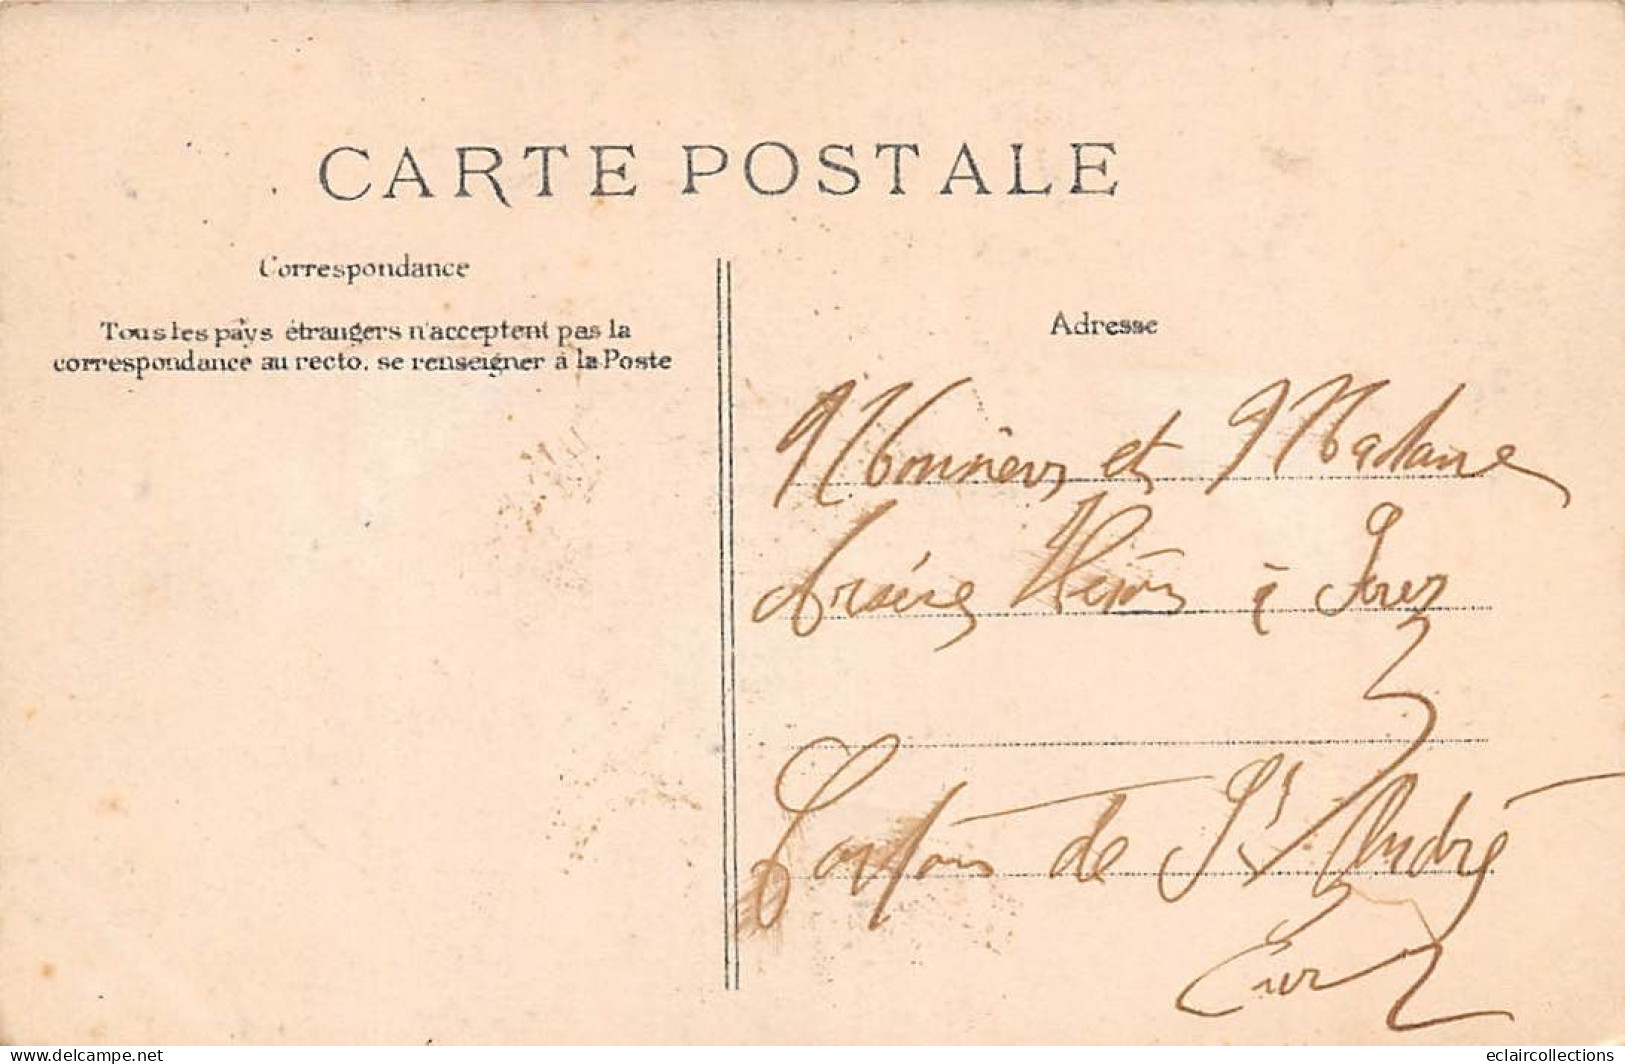 CARTE POSTALE
Correspondance
Tous les pays étrangers n'acceptent pas la
correspondance au recto, se renseigner à la Poste
Adresse
Monsieur et Madame
à Serez
Canton de St André
Eure
eclaircollections